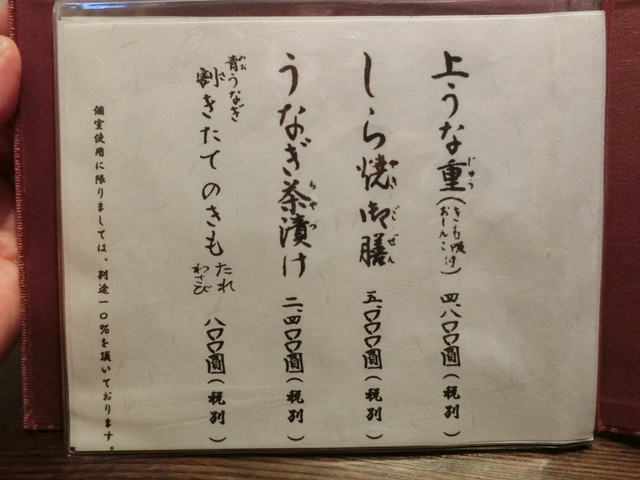 上うな重(きも吸付 おしんこ) 四、八〇〇圓(税別)
じゅう
しら焼御膳 五、〇〇〇圓(税別)
やき ごぜん
うなぎ茶漬け 二、四〇〇圓(税別)
ちゃづ
青うなぎ
あお
割きたてのきも たれ わさび 八〇〇圓(税別)
さ
個室使用に限りましては、別途一〇%を頂いております。